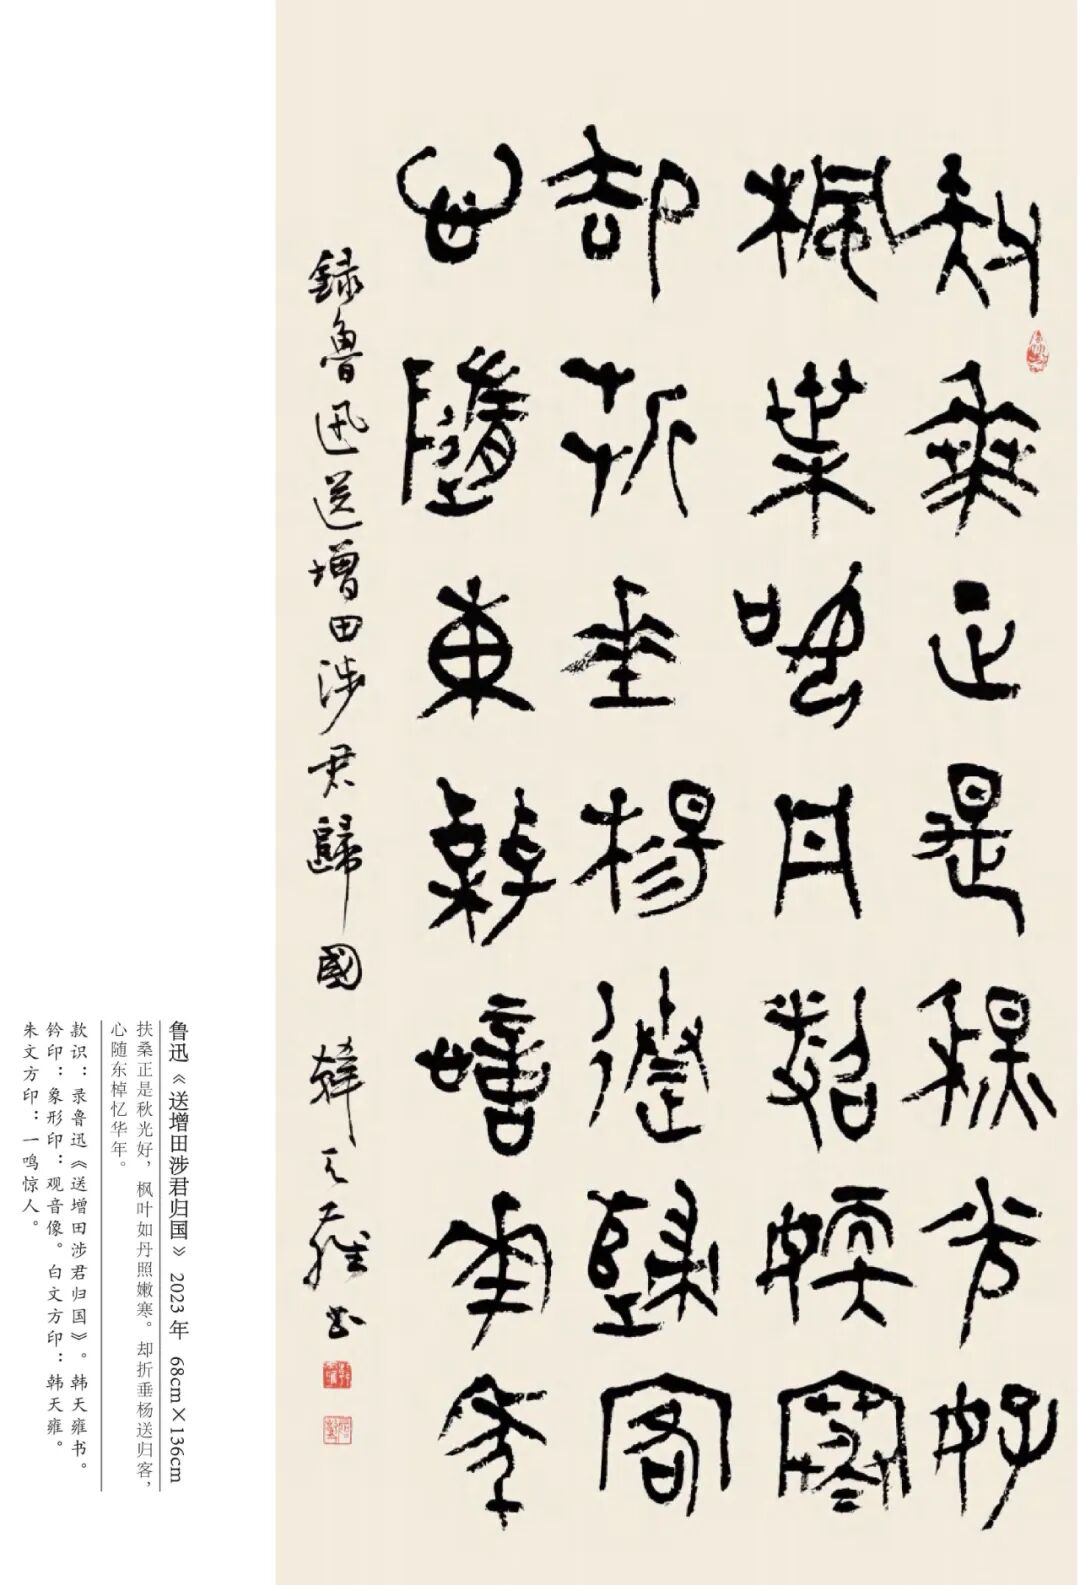 扶桑正是秋光好
枫叶如丹照嫩寒
却折垂杨送归客
心随东棹忆华年
録魯迅送增田涉君歸國 韓天雍书
鲁迅《送增田涉君归国》 2023年 68cm×136cm
扶桑正是秋光好，枫叶如丹照嫩寒。却折垂杨送归客，
心随东棹忆华年。
款识：录鲁迅《送增田涉君归国》。韩天雍书。
钤印：象形印：观音像。白文方印：韩天雍。
朱文方印：一鸣惊人。